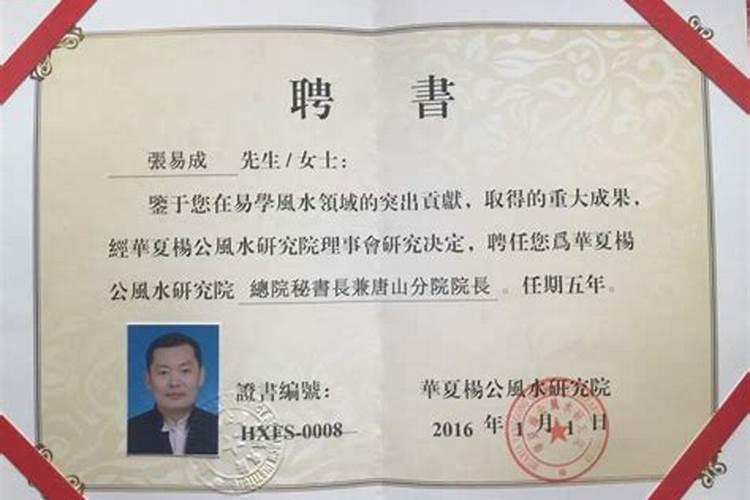 聘 書
張易成 先生/女士：
鑒于您在易學風水領域的突出貢獻，取得的重大成果，
經華夏楊公風水研究院理事會研究决定，聘任您爲華夏楊
公風水研究院 總院秘書長兼唐山分院院長 。任期五年。
證書編號：
HXFS-0008
華夏楊公風水研究院
2016 年 1 月 1 日